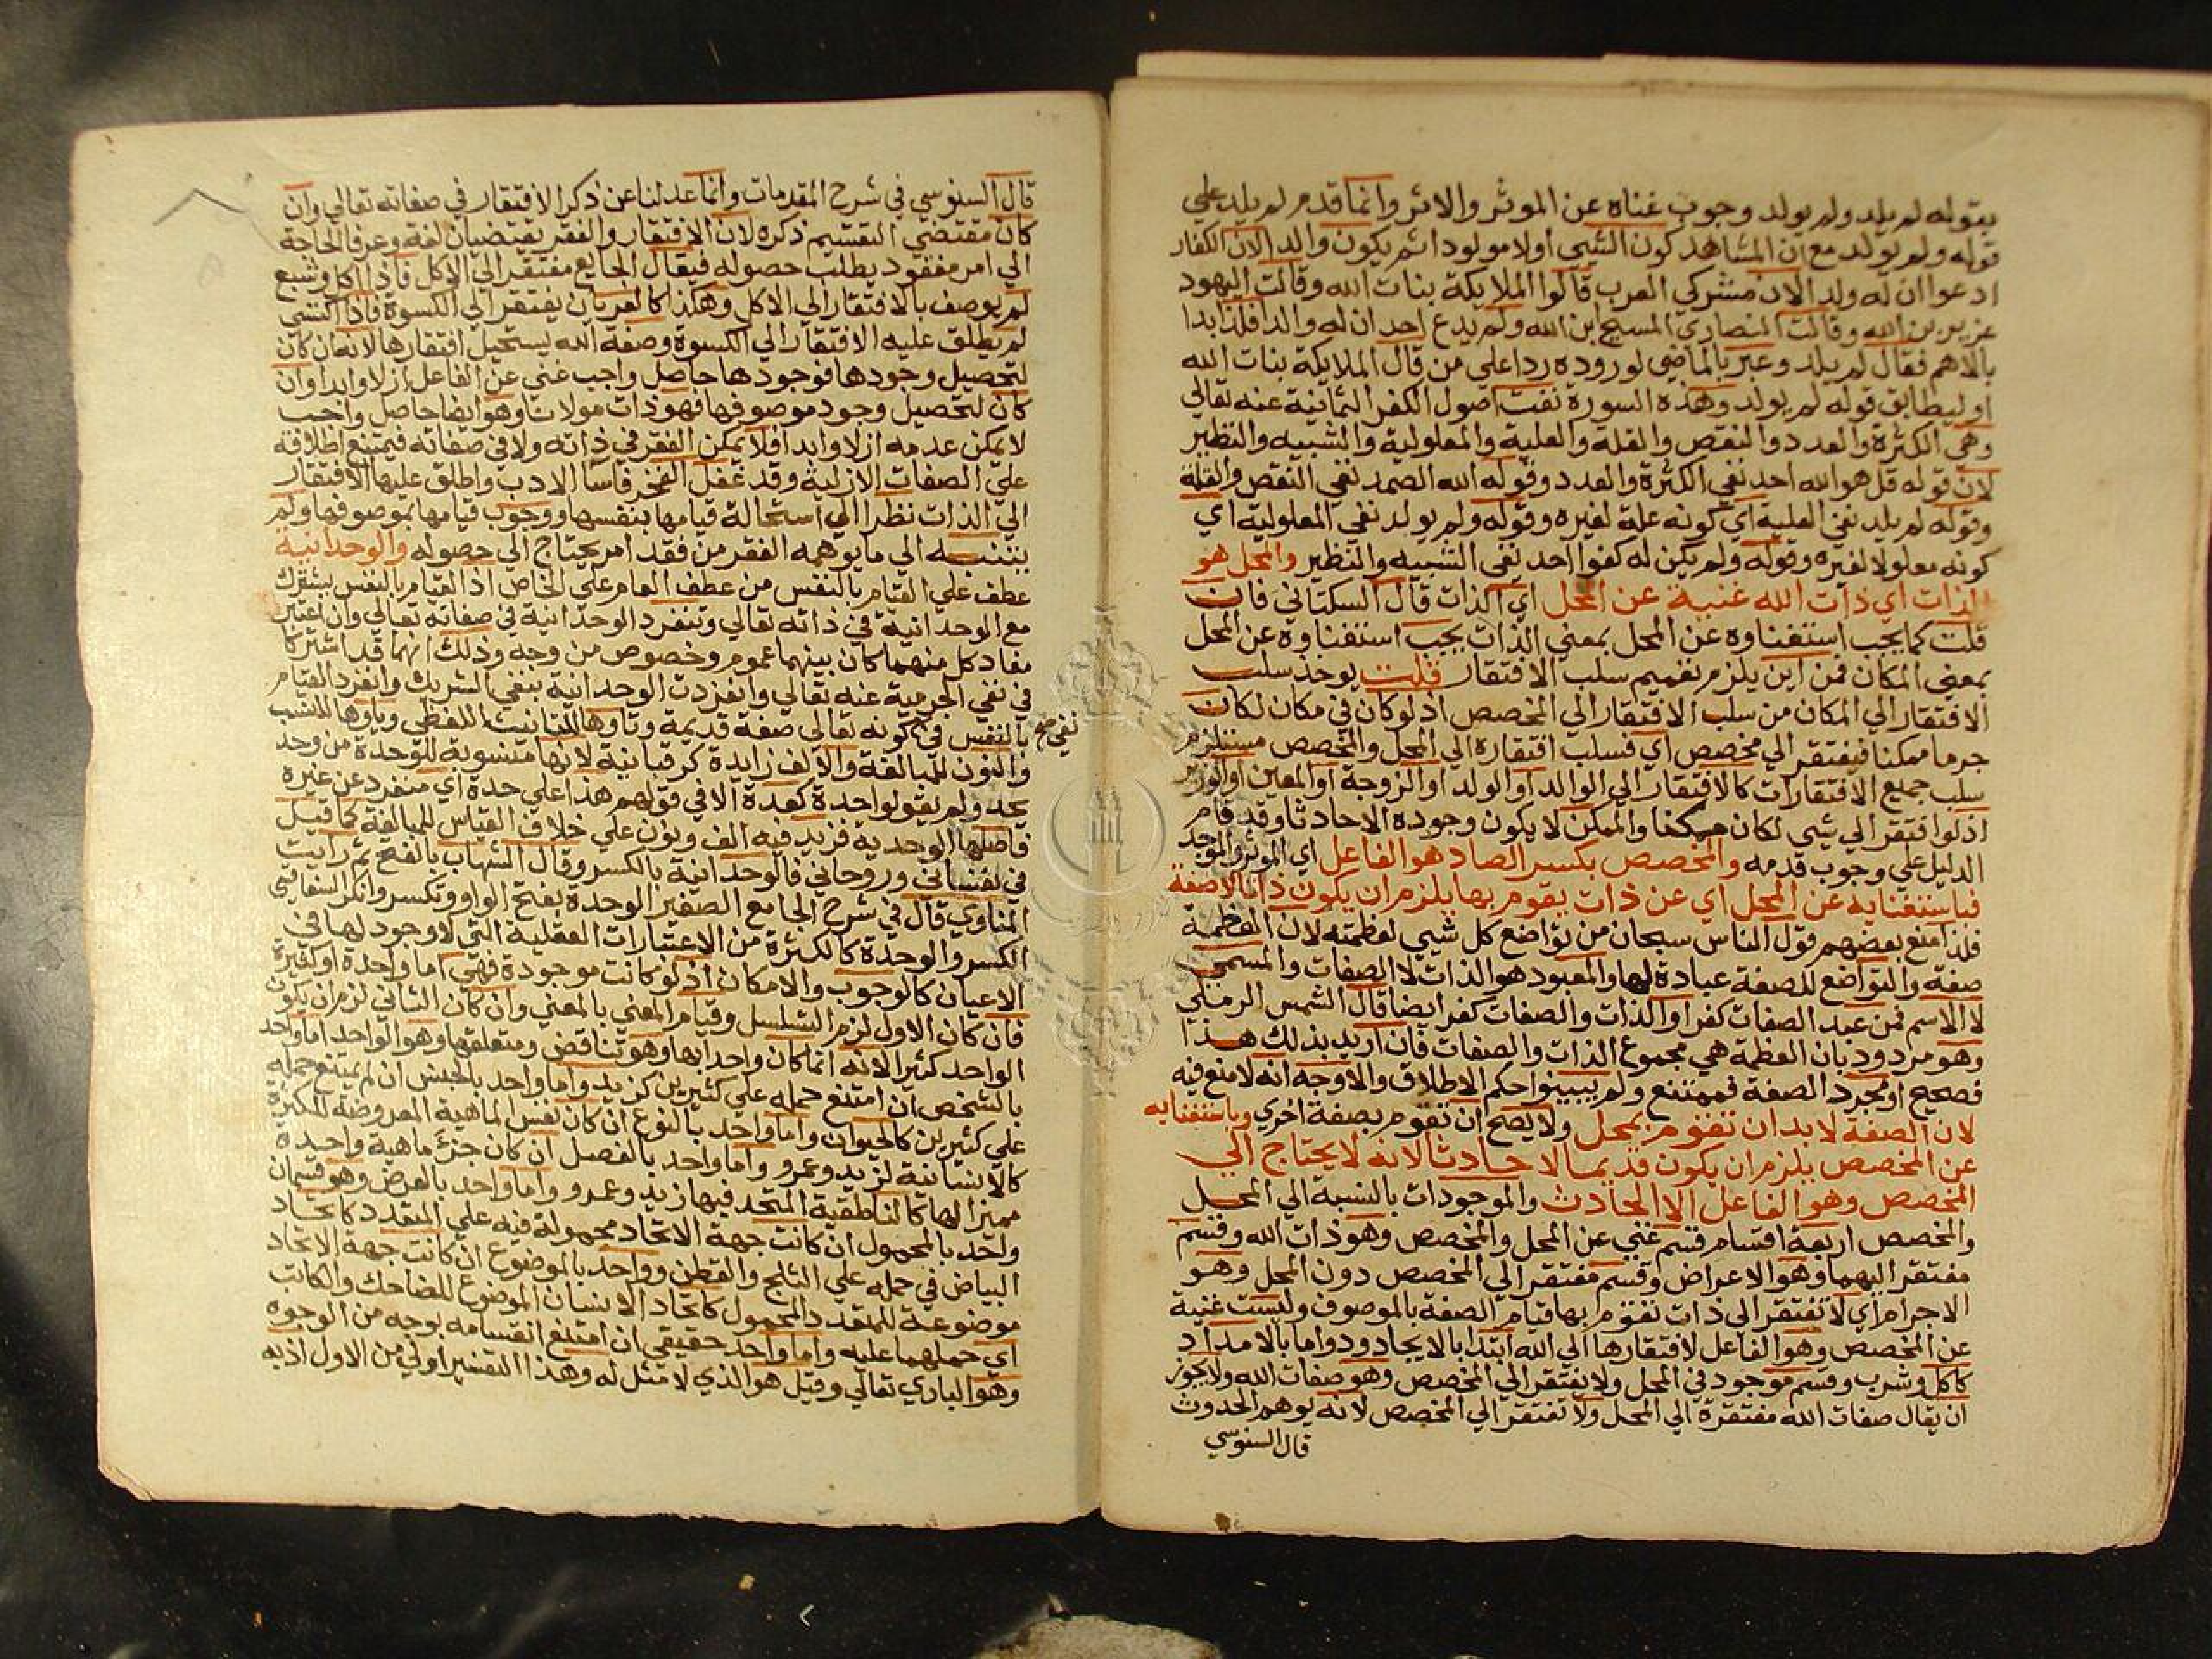 بقوله لم يلد ولم يولد وجوب غناه عن الموثر والاثر وانما قدم لم يلد علي
قوله ولم يولد مع ان المشاهد كون الشي اولا مولودا ثم يكون والدا لان الكفار
ادعوا ان له ولدا لان مشركي العرب قالوا الملايكة بنات الله وقالت اليهود
عزير بن الله وقالت النصاري المسيح ابن الله ولم يدع احد ان له والدا فلذا بدا
بالاهم فقال لم يلد وعبر بالماضي لوروده ردا علي من قال الملايكة بنات الله
او ليطابق قوله لم يولد وهذه السورة نفت اصول الكفر الثمانية عنه تعالي
وهي الكثرة والعدد والنقص والقلة والعلية والمعلولية والشبيه والنظير
لان قوله قل هو الله احد نفي الكثرة والعدد وقوله الله الصمد نفي النقص والقلة
وقوله لم يلد نفي العلية اي كونه علة لغيره وقوله ولم يولد نفي المعلولية اي
كونه معلولا لغيره وقوله ولم يكن له كفوا احد نفي الشبيه والنظير والمحل هو
الذات اي ذات الله غنية عن المحل اي الذات قال السكتاني فان
قلت كما يجب استغناوه عن المحل بمعني الذات يجب استغناوه عن المحل
بمعني المكان فمن اين يلزم تعميم سلب الافتقار قلت يوخذ سلب
الافتقار الي المكان من سلب الافتقار الي المخصص اذ لو كان في مكان لكان
جرما ممكنا فيفتقر الي مخصص اي فسلب افتقاره الي المحل والمخصص مستلزم
سلب جميع الافتقارات كالافتقار الي الوالد او الولد او الزوجة او المعين او الوزير
اذ لو افتقر الي شي لكان ممكنا والممكن لا يكون وجوده الا حادثا وقد قام
الدليل علي وجوب قدمه والمخصص بكسر الصاد هو الفاعل اي الموثر والموجد
فباستغنايه عن المحل اي عن ذات يقوم بها يلزم ان يكون ذاتا لا صفة
فلذا منع بعضهم قول الناس سبحان من تواضع كل شيي لعظمته لان العظمة
صفة والتواضع للصفة عبادة لها والمعبود هو الذات لا الصفات والمسمي
لا الاسم فمن عبد الصفات كفر او الذات والصفات كفر ايضا قال الشمس الرملي
وهو مردود بان العظمة هي مجموع الذات والصفات فان اريد بذلك هذا
فصحيح او مجرد الصفة فممتنع ولم يبينوا حكم الاطلاق والاوجه انه لا منع فيه
لان الصفة لا بد ان تقوم بمحل ولا يصح ان تقوم بصفة اخري وباستغنايه
عن المخصص يلزم ان يكون قديما لا حادثا لانه لا يحتاج الي
المخصص وهو الفاعل الا الحادث والموجودات بالنسبة الي المحل
والمخصص اربعة اقسام قسم غني عن المحل والمخصص وهو ذات الله وقسم
مفتقر اليهما وهو الاعراض وقسم مفتقر الي المخصص دون المحل وهو
الاجرام اي لا تفتقر الي ذات تقوم بها قيام الصفة بالموصوف وليست غنية
عن المخصص وهو الفاعل لافتقارها الي الله ابتدا بالايجاد ودواما بالامداد
كاكل وشرب وقسم موجود في المحل ولا يفتقر الي المخصص وهو صفات الله ولا يجوز
ان يقال صفات الله مفتقرة الي المحل ولا تفتقر الي المخصص لانه يوهم الحدوث
قال السنوسي
قال السنوسي في شرح المقدمات وانما عدلنا عن ذكر الافتقار في صفاته تعالي وان
كان مقتضي التقسيم ذكره لان الافتقار والفقر يقتضيان لغة وعرفا الحاجة
الي امر مفقود يطلب حصوله فيقال الجايع مفتقر الي الاكل فاذا اكل وشبع
لم يوصف بالافتقار الي الاكل وهكذا كالعريان يفتقر الي الكسوة فاذا اكتسي
لم يطلق عليه الافتقار الي الكسوة وصفة الله يستحيل افتقارها لانه ان كان
لتحصيل وجودها فوجودها حاصل واجب غني عن الفاعل ازلا وابدا وان
كان لتحصيل وجود موصوفها فهو ذات مولانا وهو ايضا حاصل واجب
لا يمكن عدمه ازلا وابدا فلا يمكن الفقر في ذاته ولا في صفاته فيمتنع اطلاقه
علي الصفات الازلية وقد غفل الفخر فاسا الادب واطلق عليها الافتقار
الي الذات نظرا الي استحالة قيامها بنفسها ووجوب قيامها بموصوفها ولم
يتنبه الي ما يوهمه الفقر من فقد امر يحتاج الي حصوله والوحدانية
عطف علي القيام بالنفس من عطف العام علي الخاص اذ القيام بالنفس يشترك
مع الوحدانية في ذاته تعالي وتنفرد الوحدانية في صفاته تعالي وان اعتبر
مفاد كل منهما كان بينهما عموم وخصوص من وجه وذلك انهما قد اشتركا
في نفي الجرمية عنه تعالي وانفردت الوحدانية بنفي الشريك وانفرد القيام
بالنفس في كونه تعالي صفة قديمة وتاوها للتانيث اللفظي وياوها للنسب
والنون للمبالغة والالف زايدة كرقبانية لانها منسوبة للوحدة من وحد
يحد ولم يقولوا حدة كعدة الا في قولهم هذا علي حدة اي منفرد عن غيره
فاصلها الوحدية فزيد فيه الف ونون علي خلاف القياس للمبالغة كما قيل
في نفساني وروحاني فالوحدانية بالكسر وقال الشهاب بالفتح ثم رايت
المناوي قال في شرح الجامع الصغير الوحدة بفتح الواو وتكسر وانكر السفاقسي
الكسر والوحدة كالكثرة من الاعتبارات العقلية التي لا وجود لها في
الاعيان كالوجوب والامكان اذ لو كانت موجودة فهي اما واحدة او كثيرة
فان كان الاول لزم التسلسل وقيام المعني بالمعني وان كان الثاني لزم ان يكون
الواحد كثيرا لانه انما كان واحدا بها وهو تناقض ومتعلقها وهو الواحد اما واحد
بالشخص ان امتنع حمله علي كثيرين كزيد واما واحد بالجنس ان لم يمتنع حمله
علي كثيرين كالحيوان واما واحد بالنوع ان كان نفس الماهية المعروضة للكثرة
كالانسانية لزيد وعمرو واما واحد بالفصل ان كان جزء ماهية واحدة
مميزا لها كالناطقية المتحد فيها زيد وعمرو واما واحد بالعرض وهو قسمان
واحد بالمحمول ان كانت جهة الاتحاد محمولة فيه علي المتعدد كاتحاد
البياض في حمله علي الثلج والقطن وواحد بالموضوع ان كانت جهة الاتحاد
موضوعة للمتعدد المحمول كاتحاد الانسان الموضوع للضاحك والكاتب
اي حملهما عليه واما واحد حقيقي ان امتنع انقسامه بوجه من الوجوه
وهو الباري تعالي وقيل هو الذي لا مثل له وهذا التفسير اولي من الاول اذ به